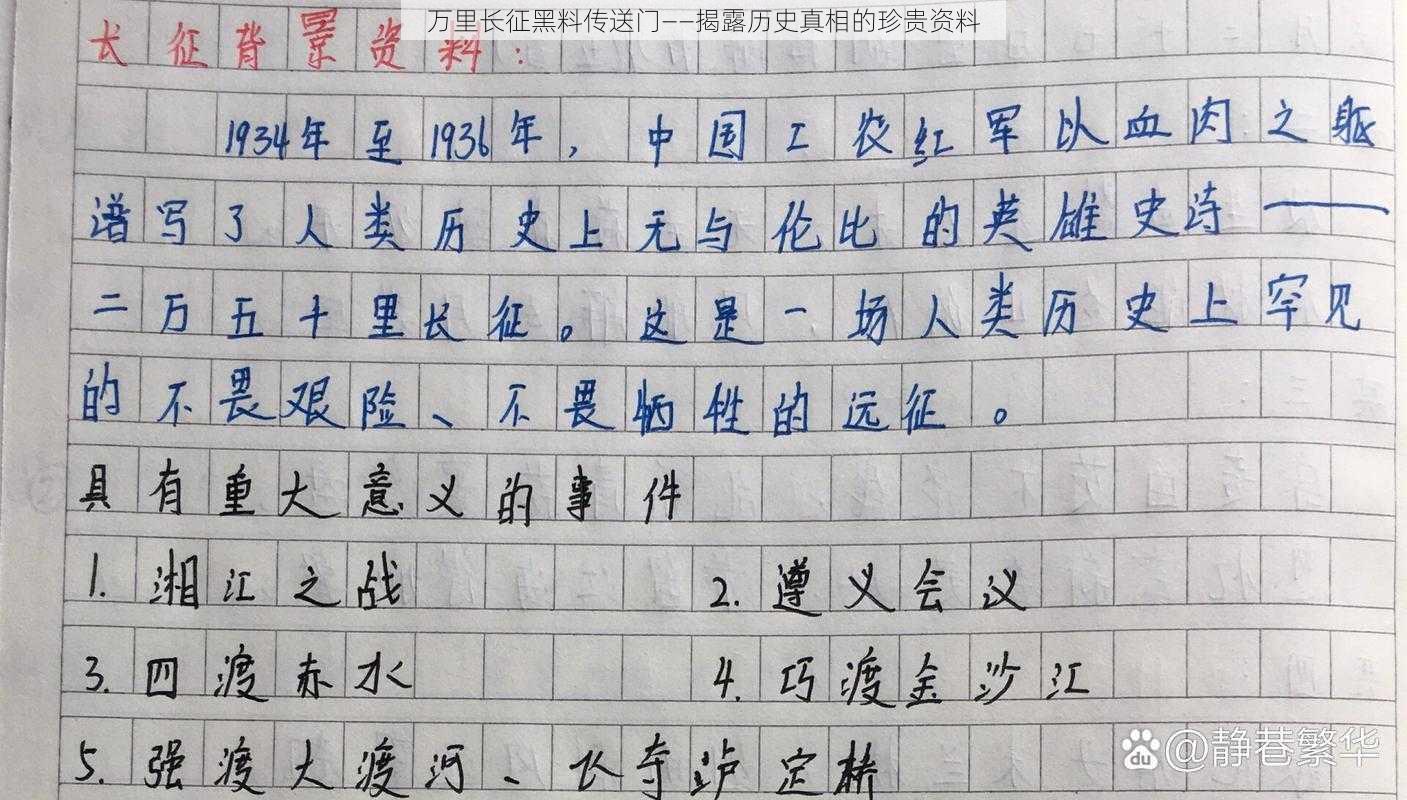 万里长征黑料传送门——揭露历史真相的珍贵资料
长征背景资料：
1934年至1936年，中国工农红军以血肉之躯
谱写了人类历史上无与伦比的英雄史诗——
二万五千里长征。这是一场人类历史上罕见
的不畏艰险、不畏牺牲的远征。
具有重大意义的事件
1. 湘江之战 2. 遵义会议
3. 四渡赤水 4. 巧渡金沙江
5. 强渡大渡河、飞夺泸定桥
Bai du @静巷繁华